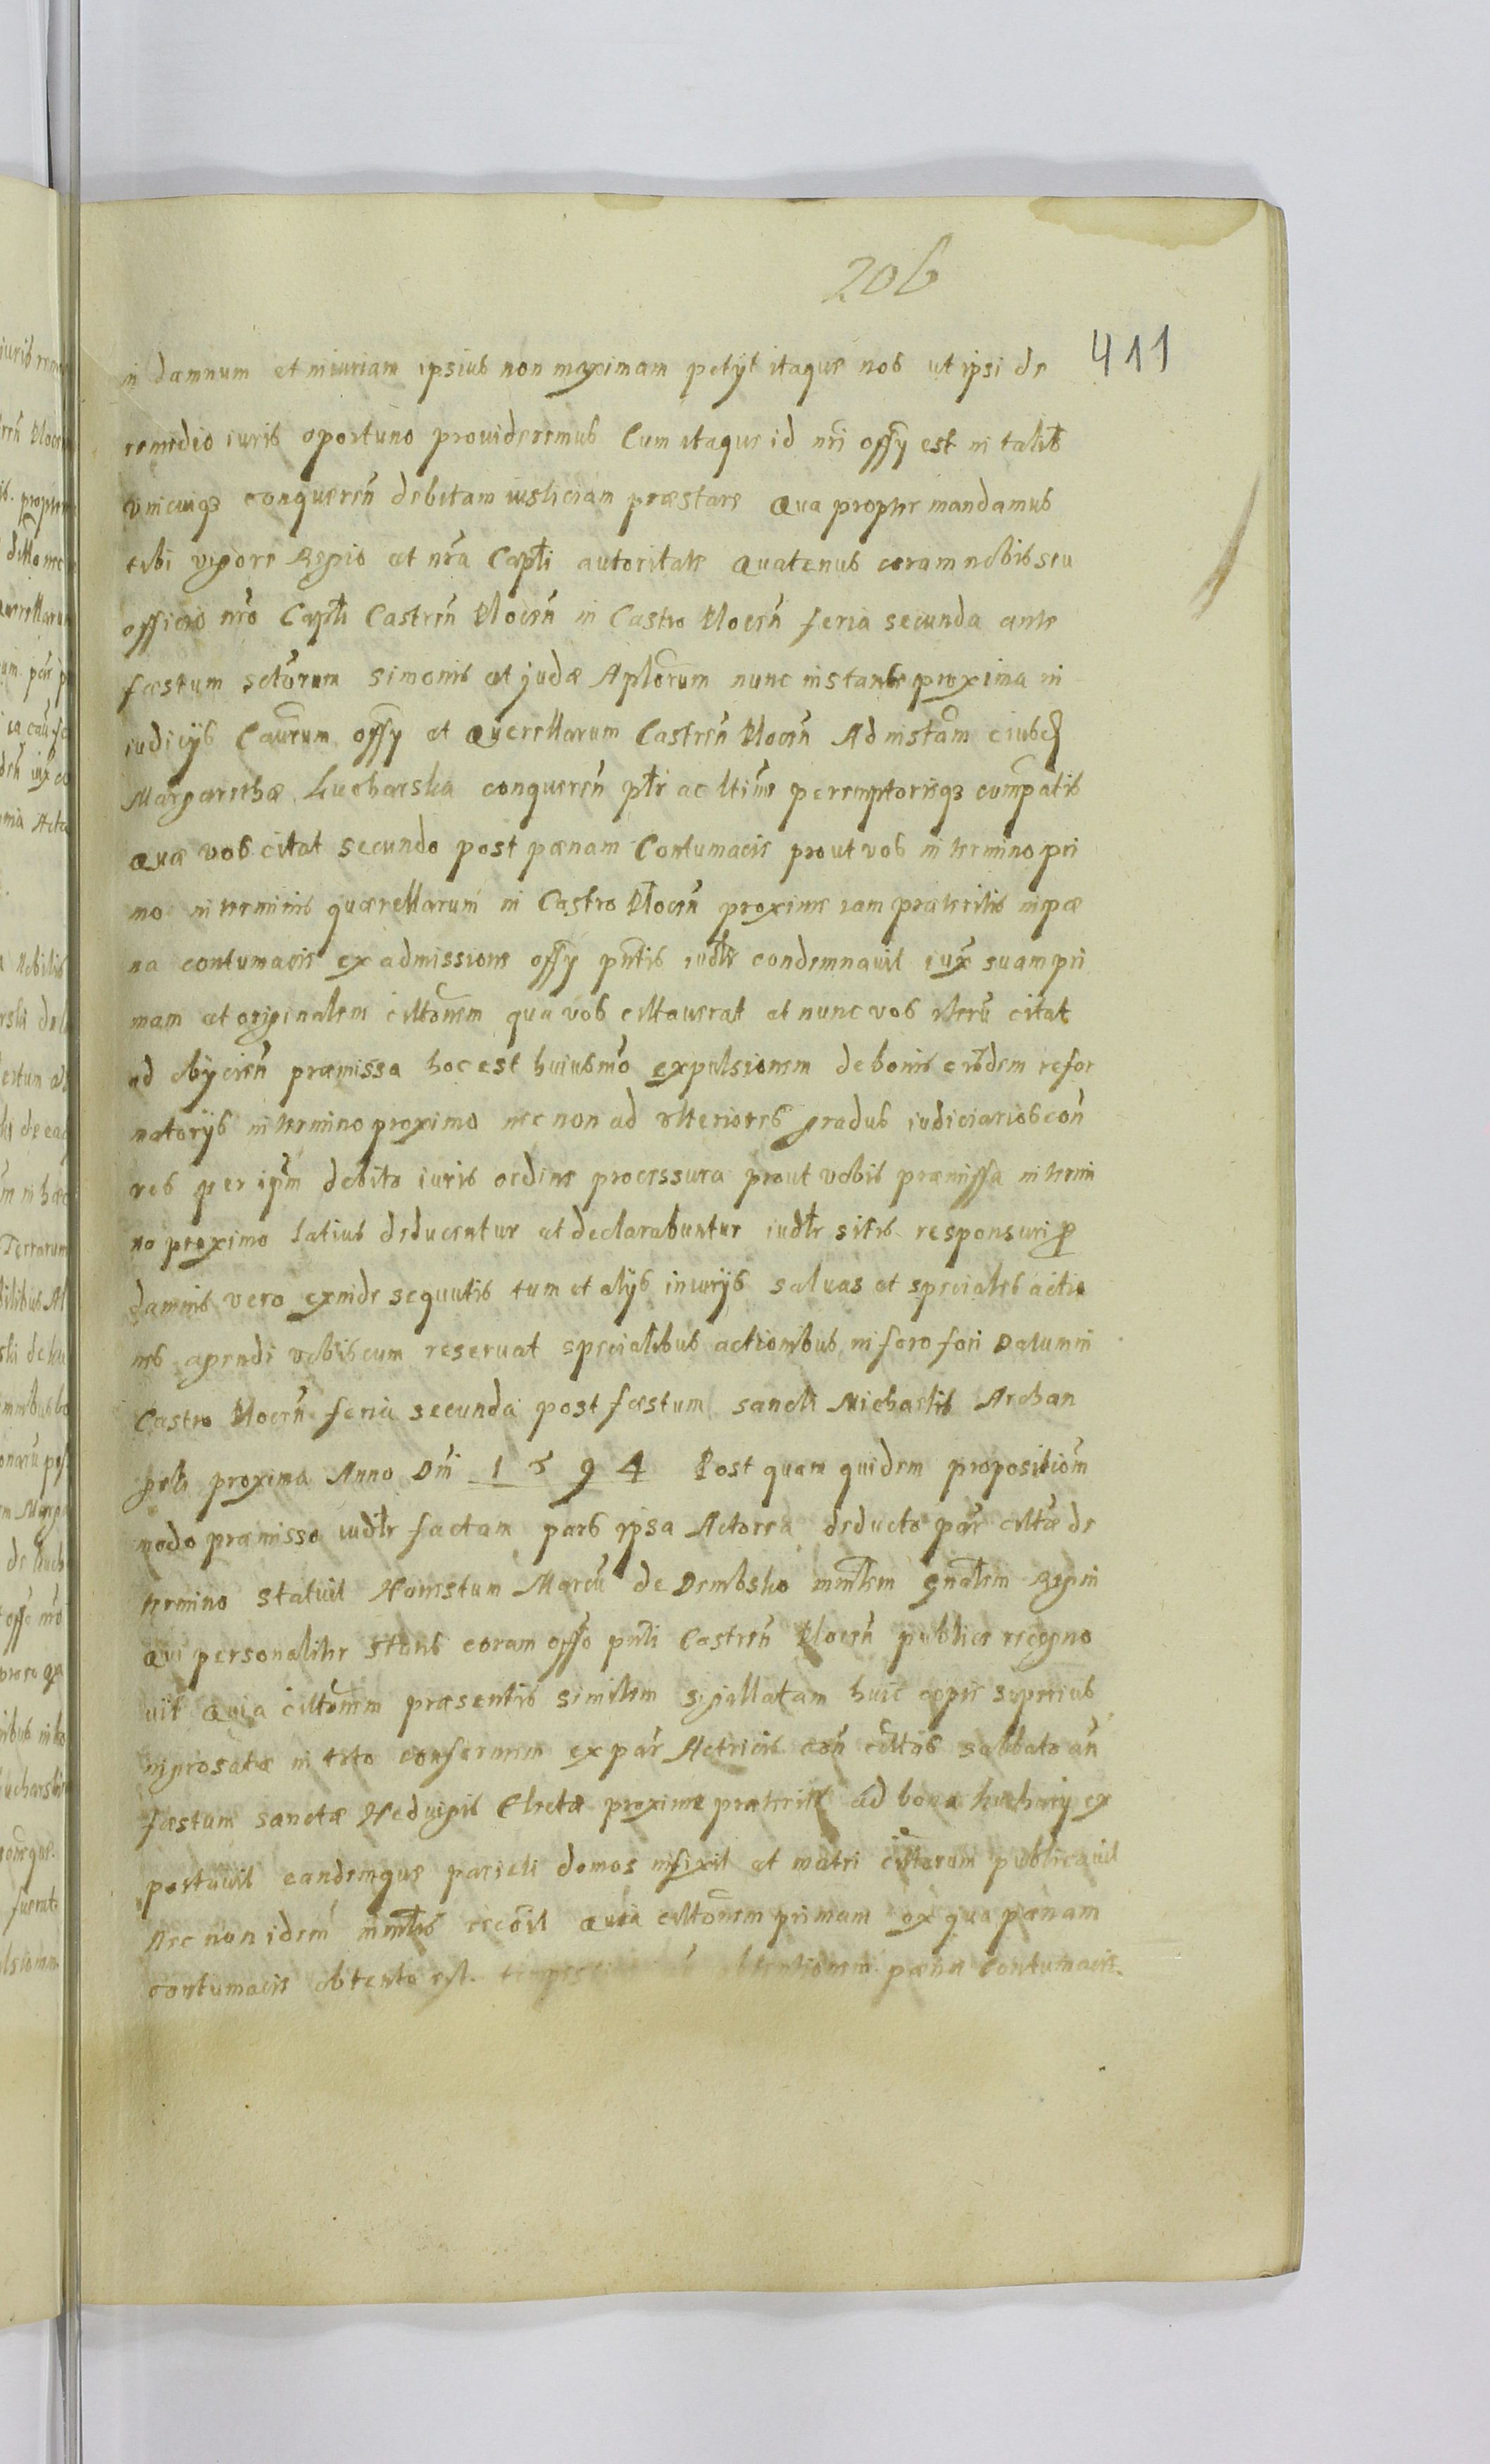 206
411
in damnum et iniuriam ipsius non maximam petyt itaque nos ut ipsi de
remedio iuris oportuno prouideremus Cum itaque id nri offy est in talib
vnicuiq3 conqueren debitam iusticiam præstare Qua propter mandamus
tibi vigore Regio et nra Capli autoritate Quatenus coram nobis seu
officio nro Capli Castren Plocen in Castro Plocen feria secunda ante
fæstum sctorum Simonis et Judæ Aplorum nunc instante proxima in
iudicys Caurum offy et Querellarum Castren Plocen Ad instam eiusd
Margarethæ Kucharska conqueren plr ac ltime peremptorieq3 compatis
Quæ vos citat secundo post pænam Contumacie prout vos in termino pri
mo in terminis quærellarum in Castro Plocen proxime iam præteritis in pæ
na contumacie ex admissione offy pntis iudlr condemnauit iux suam pri
mam et originalem cittonem qua vos cittauerat et nunc vos iteru citat
ad obycien præmissa hoc est huiusmo expulsionem de bonis eisdem refor
matorys in termino proximo nec non ad vlteriores gradus iudiciarios con
vos per ipm debito iuris ordine processura prout vobis præmissa in termi
no proximo latius deducentur et declarabuntur iudlr sitis responsuri p
damnis vero exinde sequutis tum et alys iniurys saluas et speciales actio
nes agendi vobiscum reseruat specialibus actionibus in foro fori Datum in
Castro Plocen feria secunda post fæstum sancti Michaelis Archan
geli proxima Anno Dni 1594 Post quam quidem propositiom
modo præmisso iudlr factam pars ipsa Actorea deducto par cittæ de
termino statuit Honestum Marcu de Dembsko mnlrem gnalem Regni
Qui personaliter stans coram offo pnti Castren Plocen publice recogno
uit Quia cittonem præsentis similem sigillatam huic copie superius
ingrosatæ in toto conformem ex par Actricis con cittos sabbato an
fæstum sanctæ Heduigis Electæ proxime præterit ad bona Kuchary ex
portauit eandemque parieti domos infixit et matri cittorum publicauit
Nec non idem mnlis recoit Quia cittonem primam ex qua pænam
contumacie obtenta est pænæ Contumacie